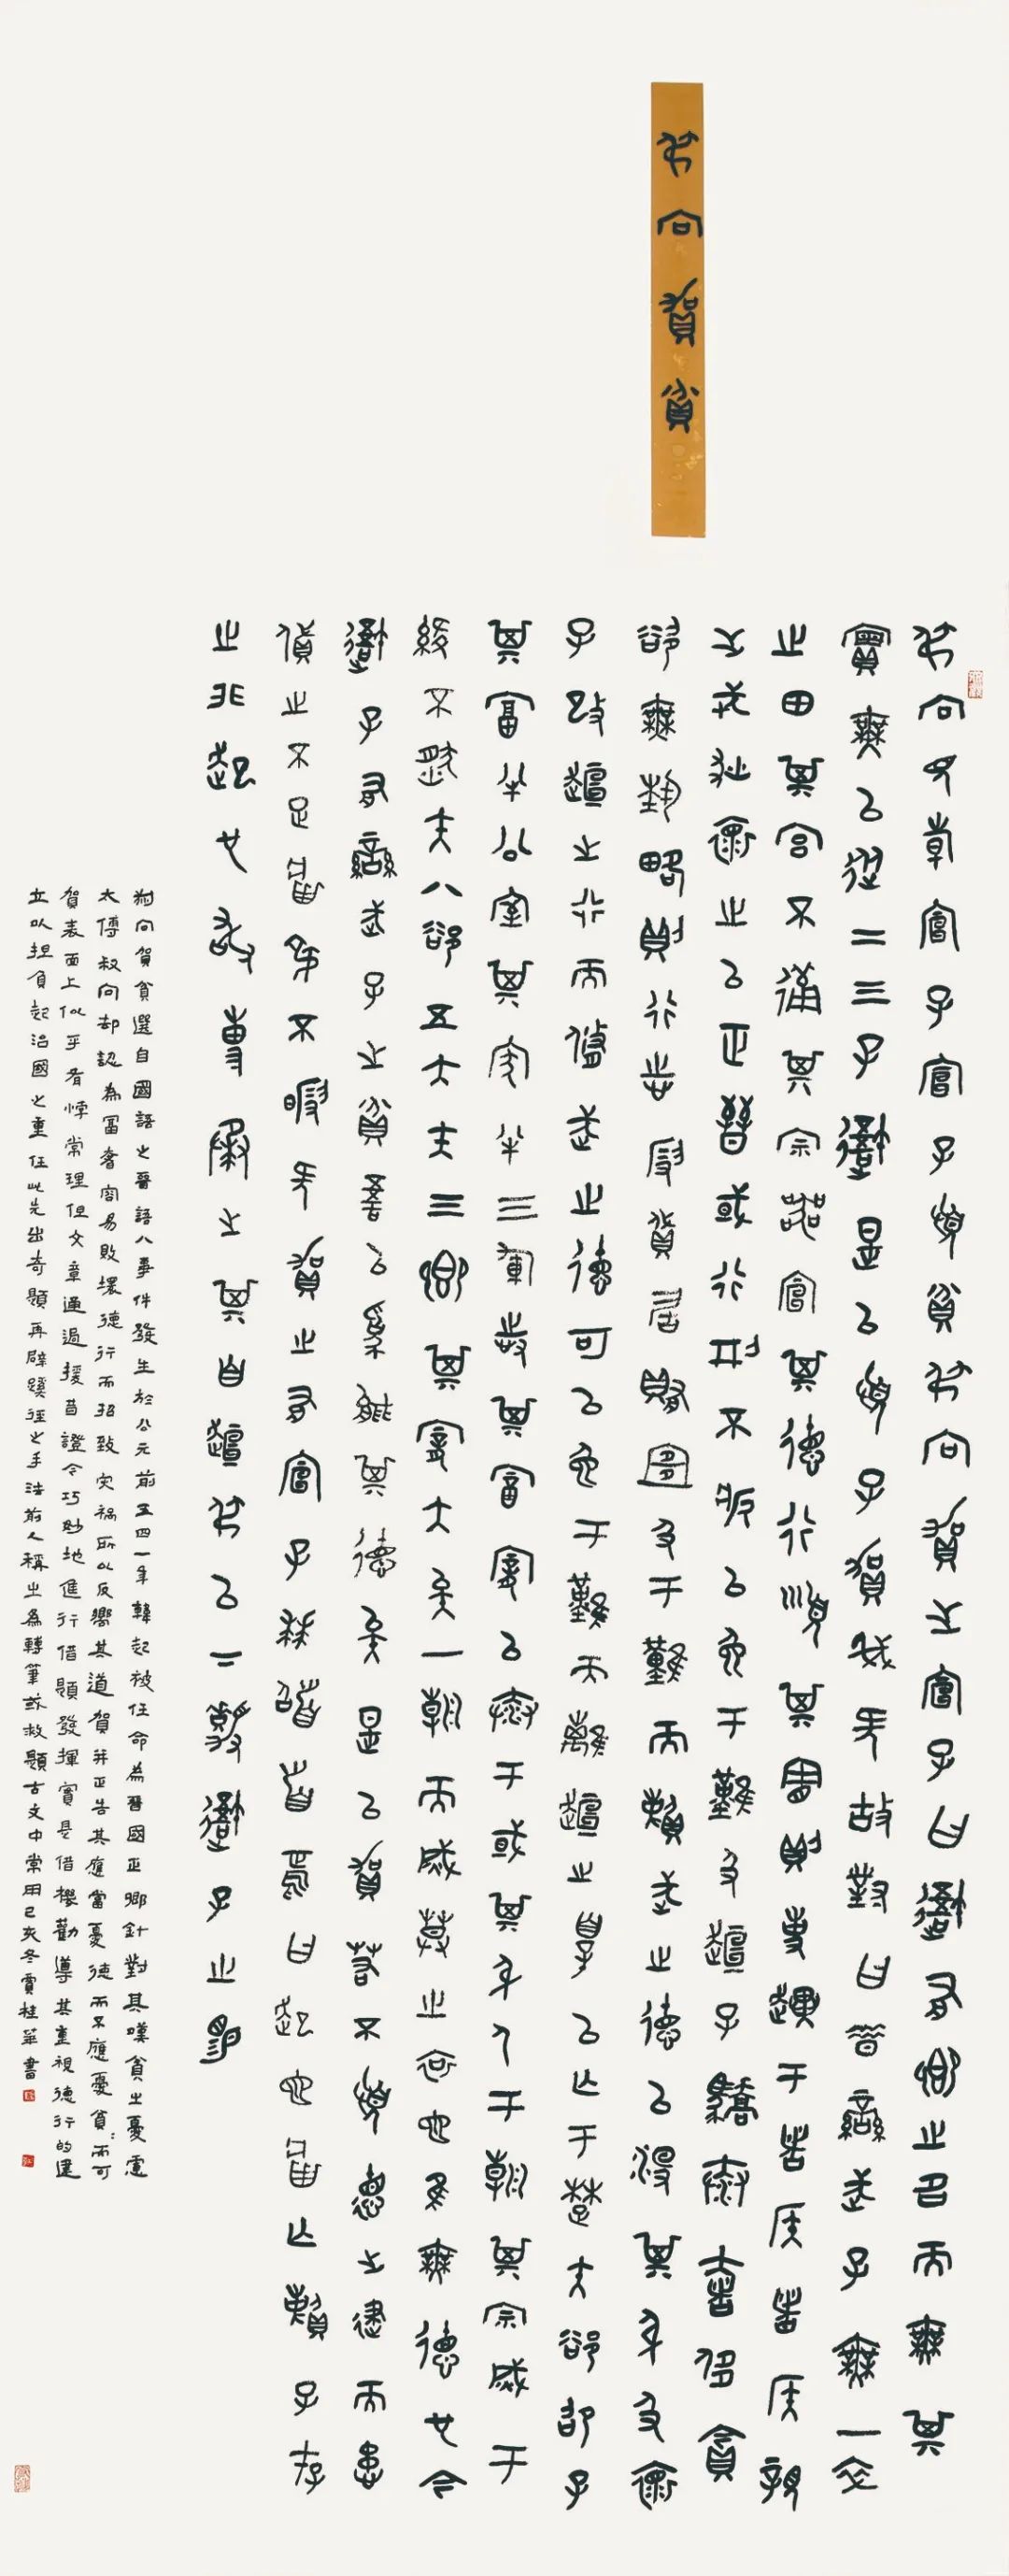 叔向賀貧
叔向見韓宣子宣子憂貧叔向賀之宣子曰吾有卿之名而無其
實無以從二三子吾是以憂子賀我何故對曰昔欒武子無一卒
之田其宮不備其宗器宣其德行順其憲則使越于諸侯諸侯親
之戎狄懷之以正晉國行刑不疚以免于難及桓子驕泰奢侈貪
欲無藝略則行志假貸居賄宜及于難而賴武之德以沒其身及懷
子改桓之行而修武之德可以免于難而離桓之罪以亡于楚夫郤昭子
其富半公室其家半三軍恃其富寵以泰于國其身尸于朝其宗滅于
絳不然夫八郤五大夫三卿其寵大矣一朝而滅莫之哀也唯無德也今
吾子有欒武子之貧吾以為能其德矣是以賀若不憂德之建而患
貨之不足將弔不暇何賀之有宣子拜稽首焉曰起也將亡賴子存
之非起也敢專承之其自桓叔以下嘉吾子之賜
叔向賀貧選自國語之晉語八事件發生於公元前五四一年韓起被任命為晉國正卿針對其嘆貧之憂慮
太傅叔向却認為富奢容易敗壞德行而招致灾禍所以反嚮其道賀并正告其應當憂德而不應憂貧而可
賀表面上似乎有悖常理但文章通過援昔證今巧妙地進行借題發揮實是借機勸導其重視德行的建
立以担負起治國之重任此先出奇題再辟蹊徑之手法前人稱之為轉筆救題古文中常用己亥冬賈桂華書